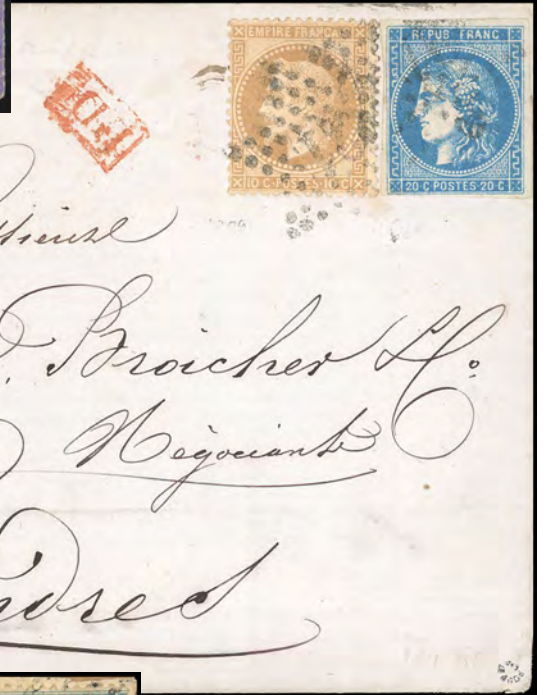 EMPIRE FRANÇAIS
10 C. POSTES 10 C.
REPUB. FRANC.
20 C. POSTES 20 C.
P.D.
Broicher & Co.
Négociants